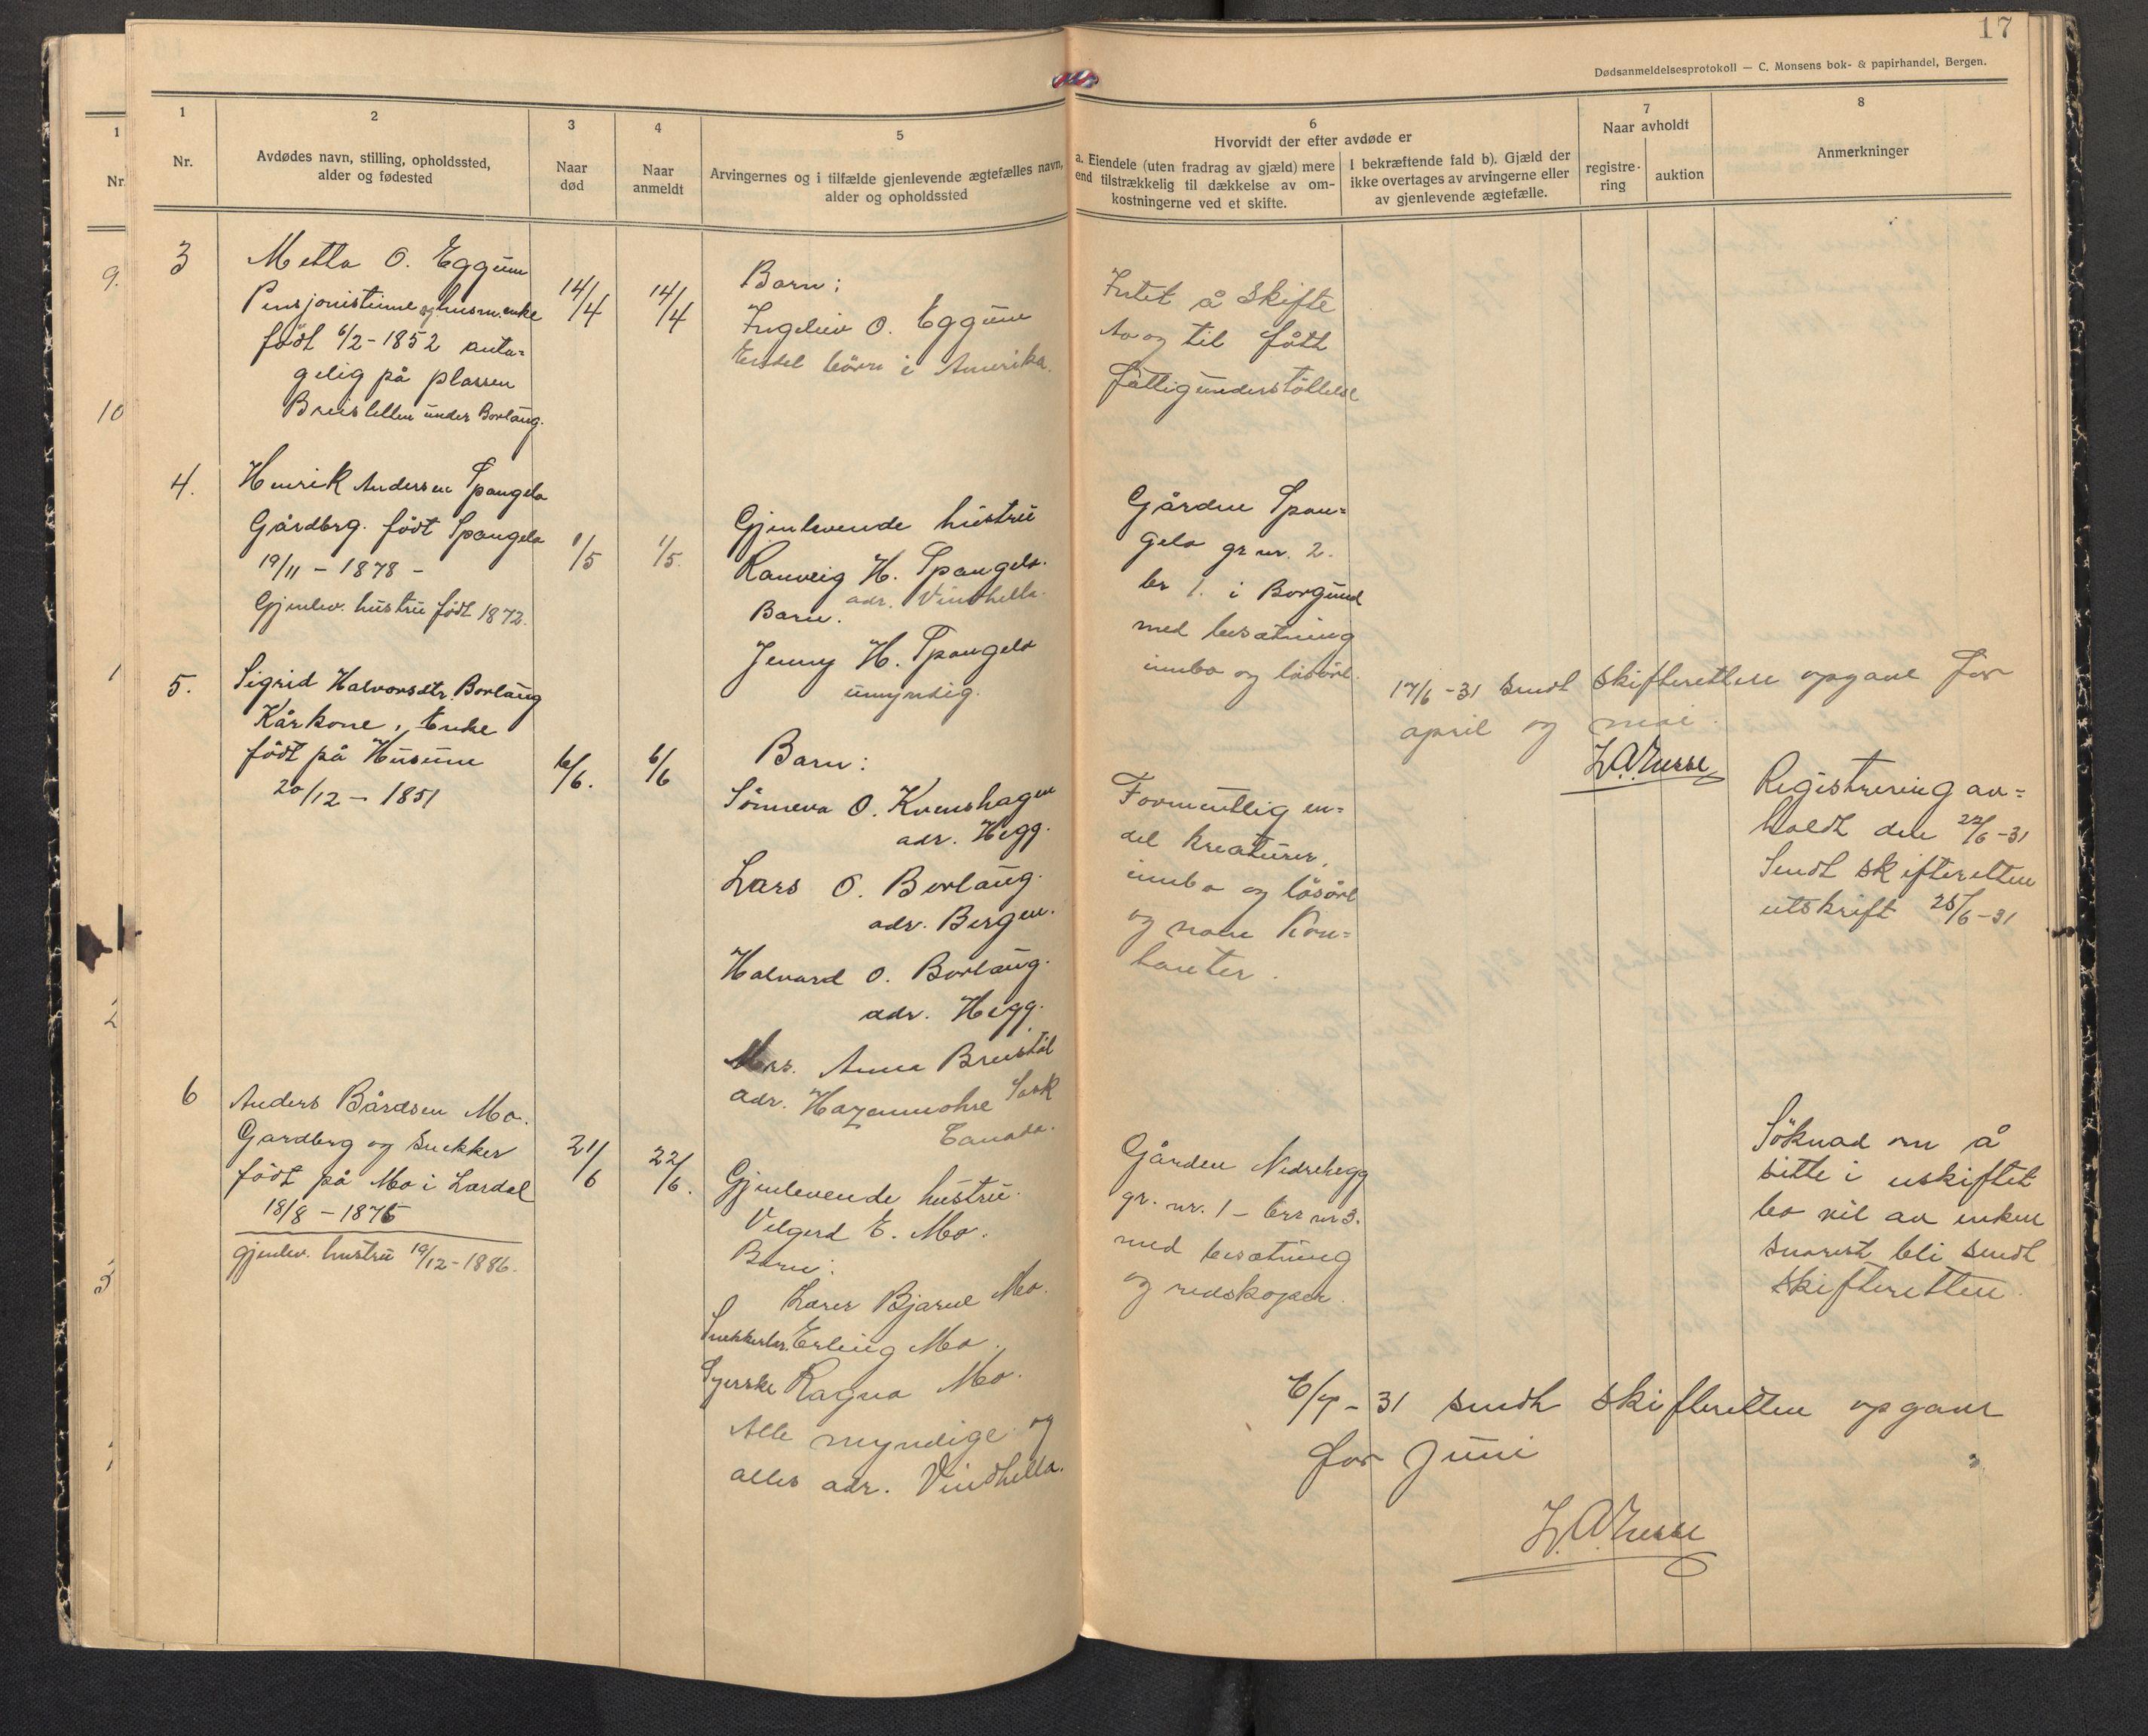 17
Dødsanmeldelsesprotokoll — C. Monsens bok- & papirhandel, Bergen.
1
Nr.
9.
10
1
2
3
1
Nr.
2
Avdødes navn, stilling, opholdssted,
alder og fødested
3
Naar
død
4
Naar
anmeldt
5
Arvingernes og i tilfælde gjenlevende ægtefælles navn,
alder og opholdssted
6
Hvorvidt der efter avdøde er
a. Eiendele (uten fradrag av gjæld) mere
end tilstrækkelig til dækkelse av om-
kostningerne ved et skifte.
I bekræftende fald b). Gjæld der
ikke overtages av arvingerne eller
av gjenlevende ægtefælle.
7
Naar avholdt
registre-
ring
auktion
8
Anmerkninger
3
Metta O. Eggum
Pensjonistinne og husm.enke
født 6/2 - 1852 anta=
gelig på plassen
under Borlaug.
14/4
14/4
Barn:
Ingeleiv O. Eggum
Endel börn i Amerika.
Intet å skifte
Av og til fått
fattigunderstöttelse
4.
Henrik Andersen Spangelo
Gårdbrg. født Spangelo
19/11 - 1878 -
Gjenlev. hustru født 1872.
1/5
1/5.
Gjenlevende hustru
Ranveig H. Spangelo.
adr. Vindhella.
Barn.
Jenny H. Spangelo
umyndig.
Gården Span=
gelo gr nr. 2.
br 1. i Borgund
med besætning
innbo og lösöre.
17/6 - 31 sendt skifteretten opgave for
april og mai.
5.
Sigrid Halvorsdtr. Borlaug
Kårkone, Enke
født på Husum
20/12 - 1851
6/6.
6/6
Barn:
Sönneva O. Kvemshagen
adr. Hegg.
Lars O. Borlaug.
adr. Bergen.
Halvard O. Borlaug.
adr. Hegg.
Mrs. Anna Breistöl
adr. Hazenmohre Sask
Canada.
Formentlig en=
del kreaturer,
innbo og lösöre
og noen Kon=
tanter.
Registrering av=
holdt den 22/6 - 31
Sendt skifteretten
utskrift 25/6 - 31
6
Anders Bårdsen Mo.
Gardbrg og Snekker
født på Mo i Lærdal
18/8 - 1875
gjenlev. hustru 19/12 - 1886.
21/6
22/6.
Gjenlevende hustru.
Velgerd E. Mo.
Barn:
Lærer Bjarne Mo.
Snekkerlær. Erling Mo.
Syerske Ragna Mo.
Alle myndige og
alles adr. Vindhella.
Gården Nedrehegg
gr. nr. 1 - brs nr 3.
med besætning
og redskaper.
Söknad om å
sitte i uskiftet
bo vil av enken
snarest bli sendt
skifteretten.
6/7 - 31 sendt skifteretten opgave
for Juni